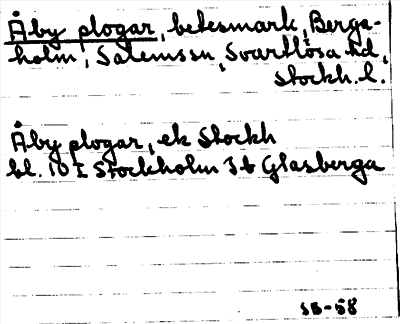 Åby plogar, betesmark, Berga-
holm, Salems sn, Svartlösa hd,
Stockh. l.
Åby plogar, ek Stockh
bl. 10 I Stockholm I b Glasberga
SB-58